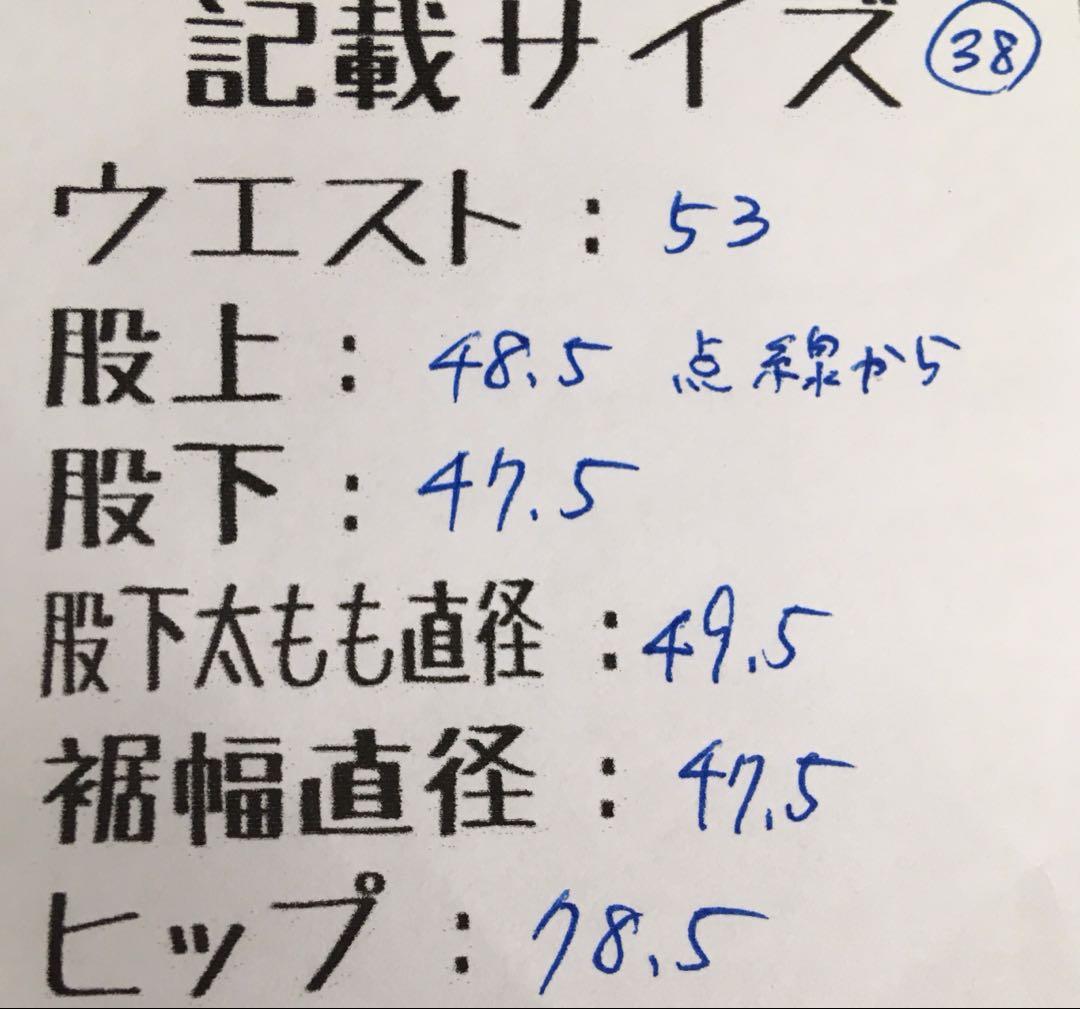 記載サイズ 38
ウエスト：53
股上：48.5 点線から
股下：47.5
股下太もも直径：49.5
裾幅直径：47.5
ヒップ：78.5